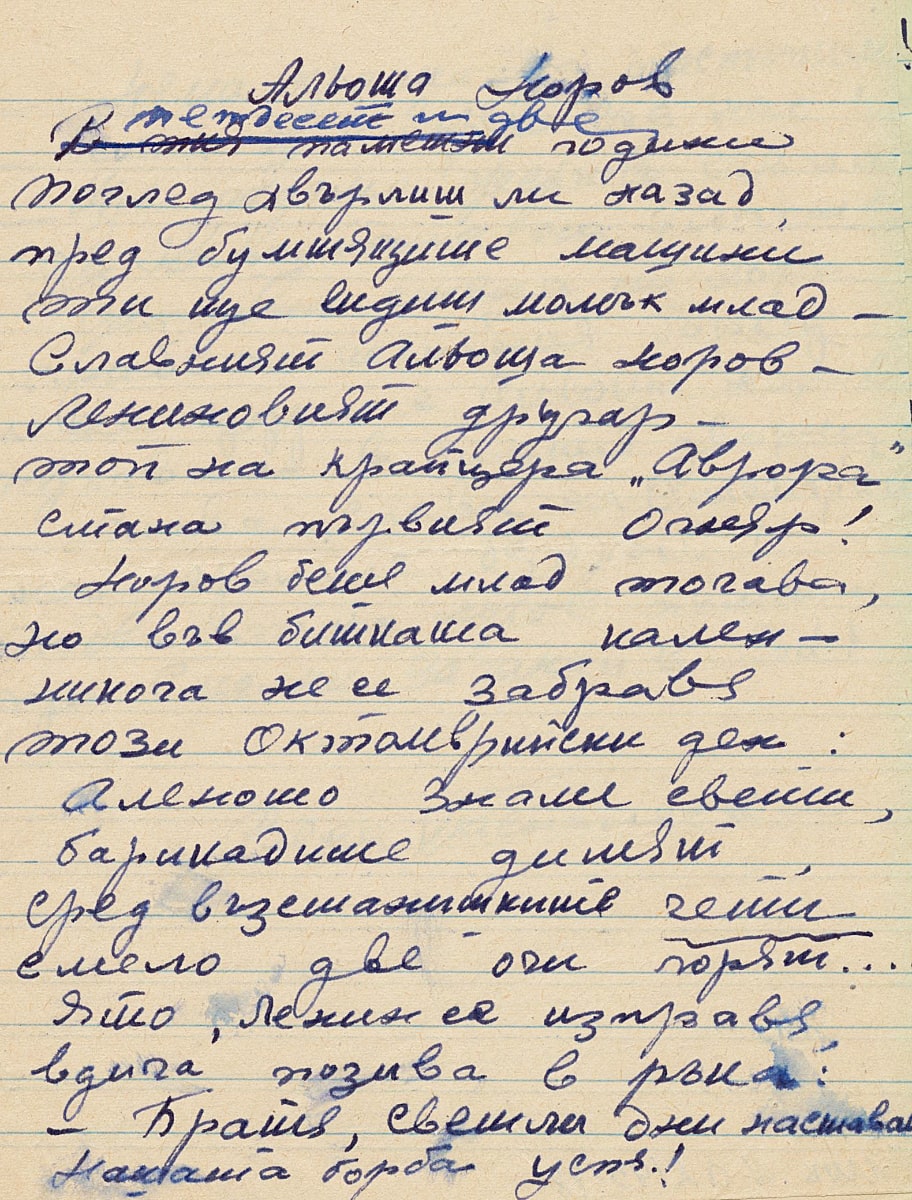 Альоша Норов
петдесет и две
В тия паметни години
поглед хвърлиш ли назад,
пред бумтящите машини
ти ще видиш момък млад –
Славният Альоша Норов –
Лениновият другар –
той на крайцера „Аврора"
стана първият огняр!
Норов беше млад тогава,
но във битката кален –
никога не се забравя
този Октомврийски ден :
Аленото знаме свети,
барикадите димят,
сред възстаниТките чети
смело две очи горят...
Ято, Ленин се изправя,
вдига позива в ръка:
– Братя, светли дни настават
Нашата борба успя.!